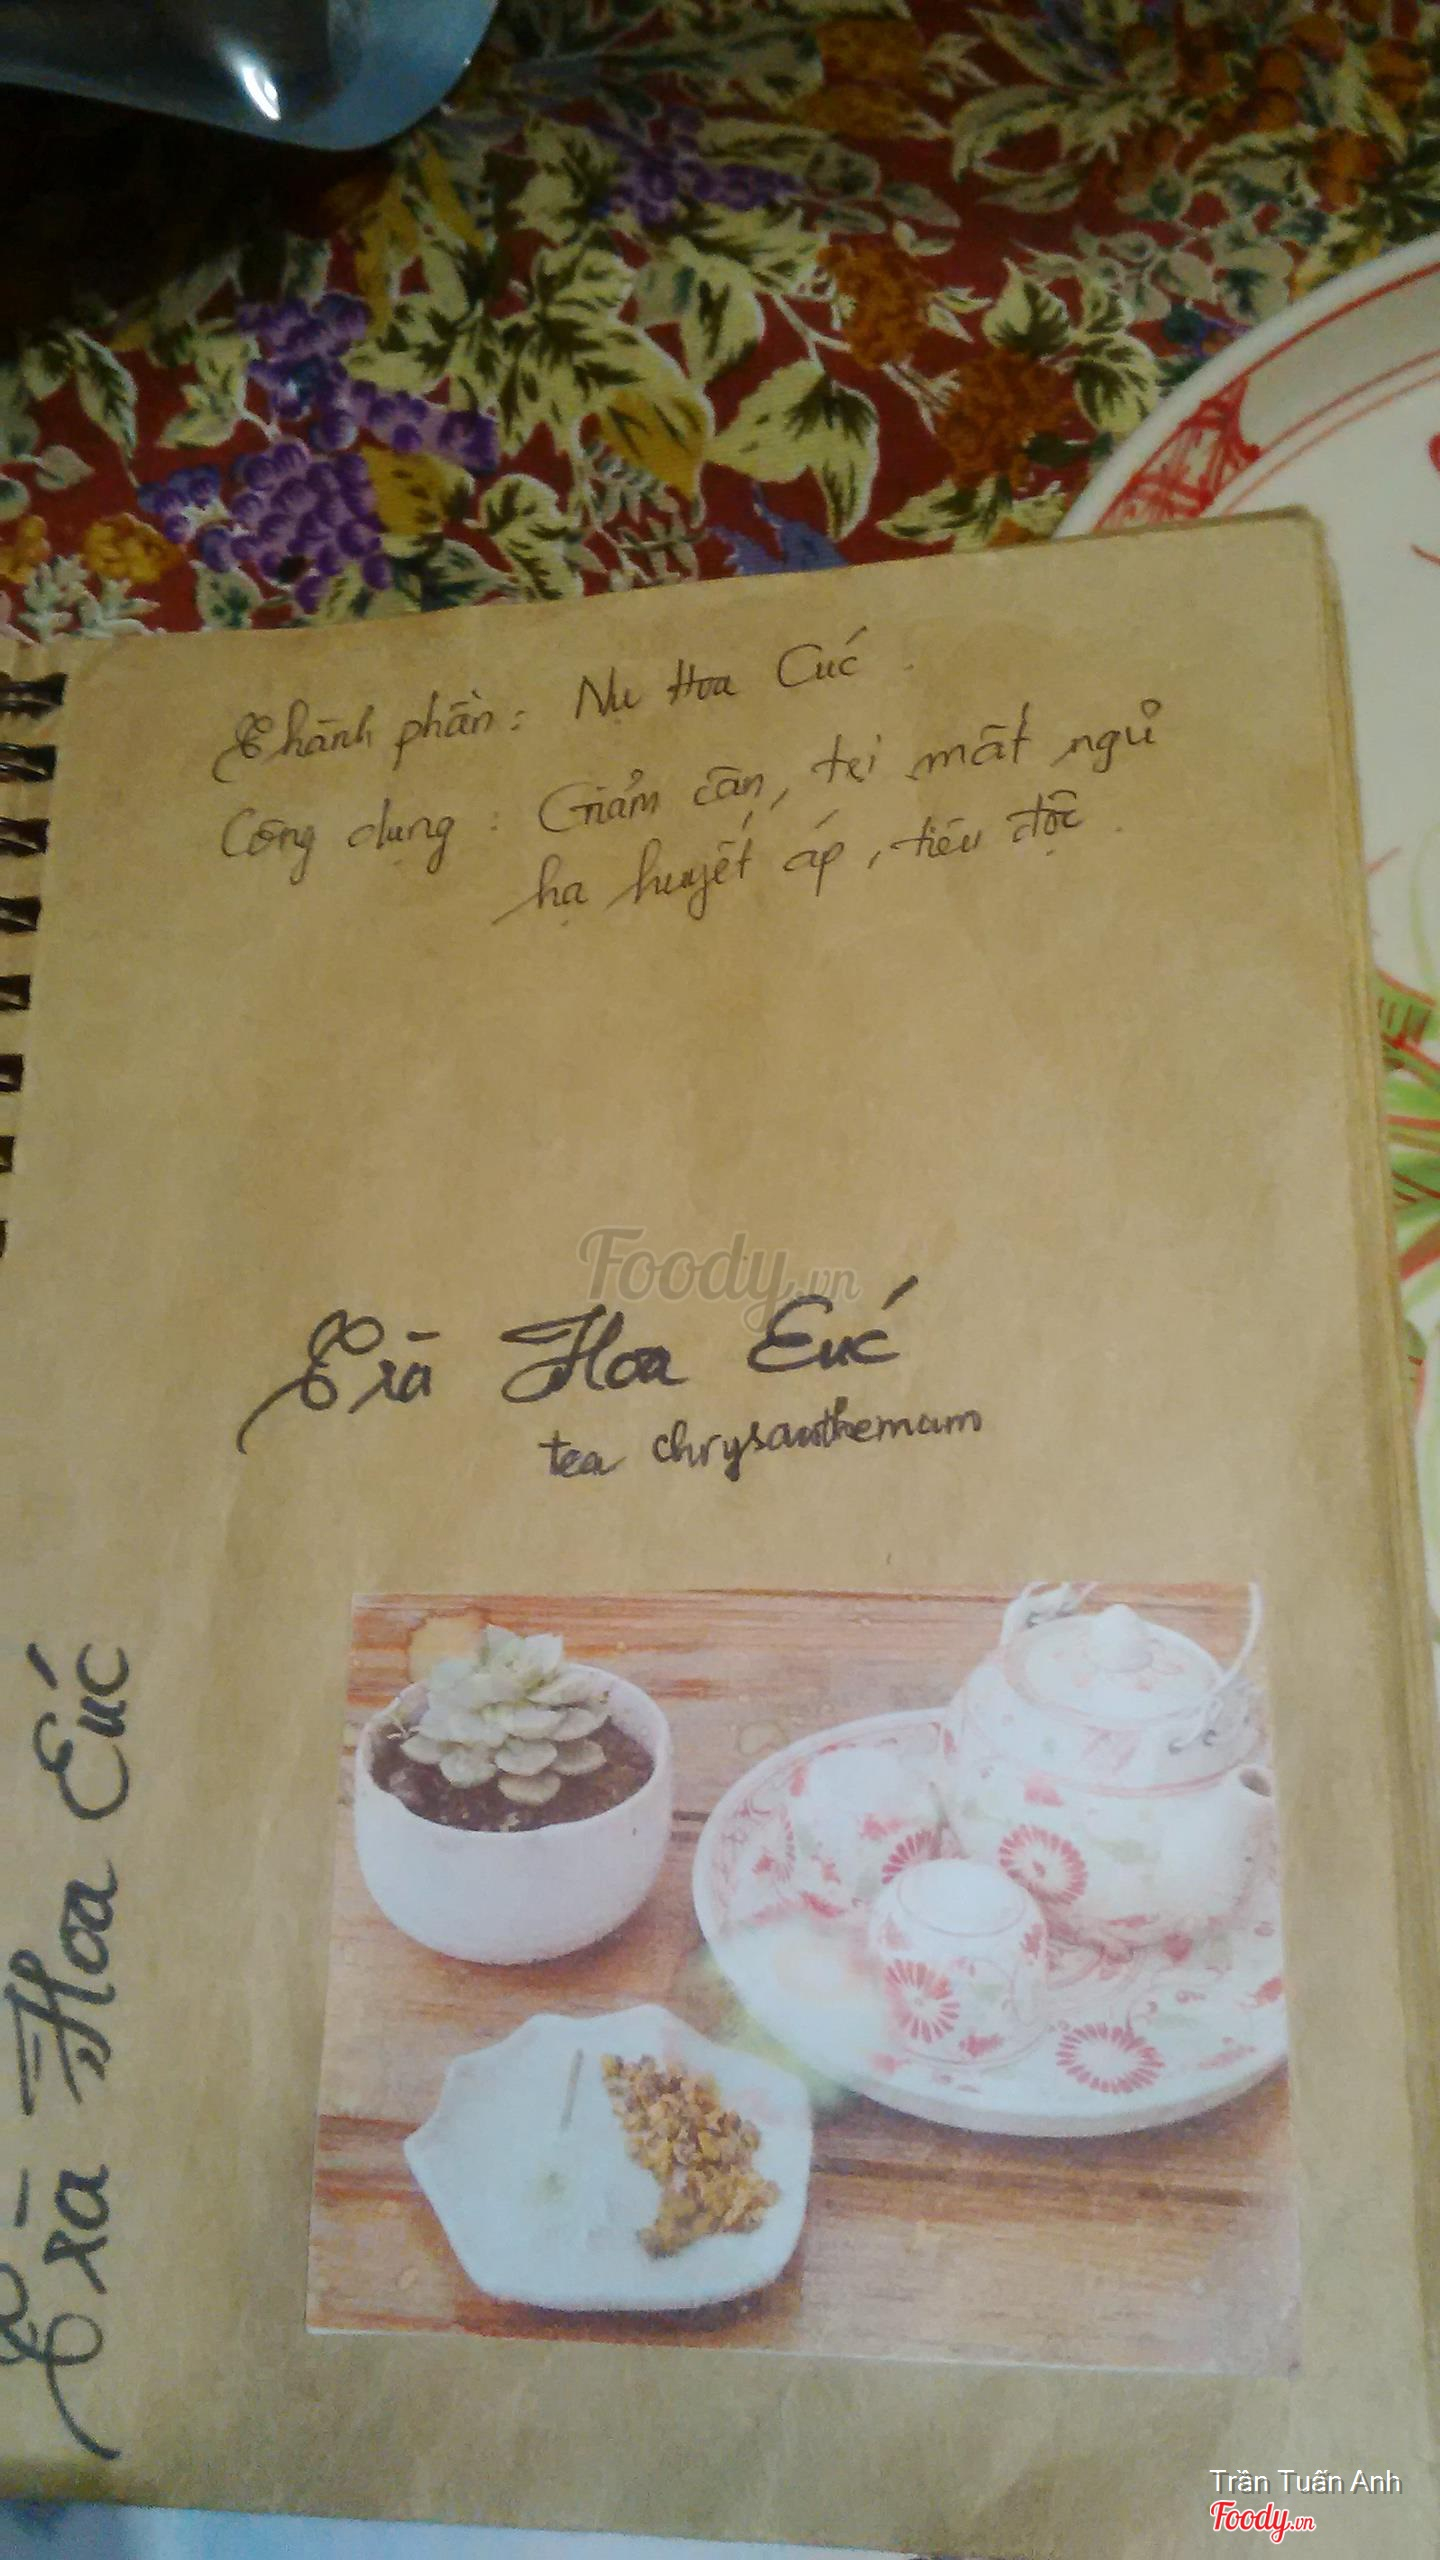 Thành phần: Nụ Hoa Cúc.
Công dụng: Giảm cân, trị mất ngủ
hạ huyết áp, tiêu độc.
Foody.vn
Trà Hoa Cúc
tea chrysanthemum
Trà Hoa Cúc
Trần Tuấn Anh
Foody.vn